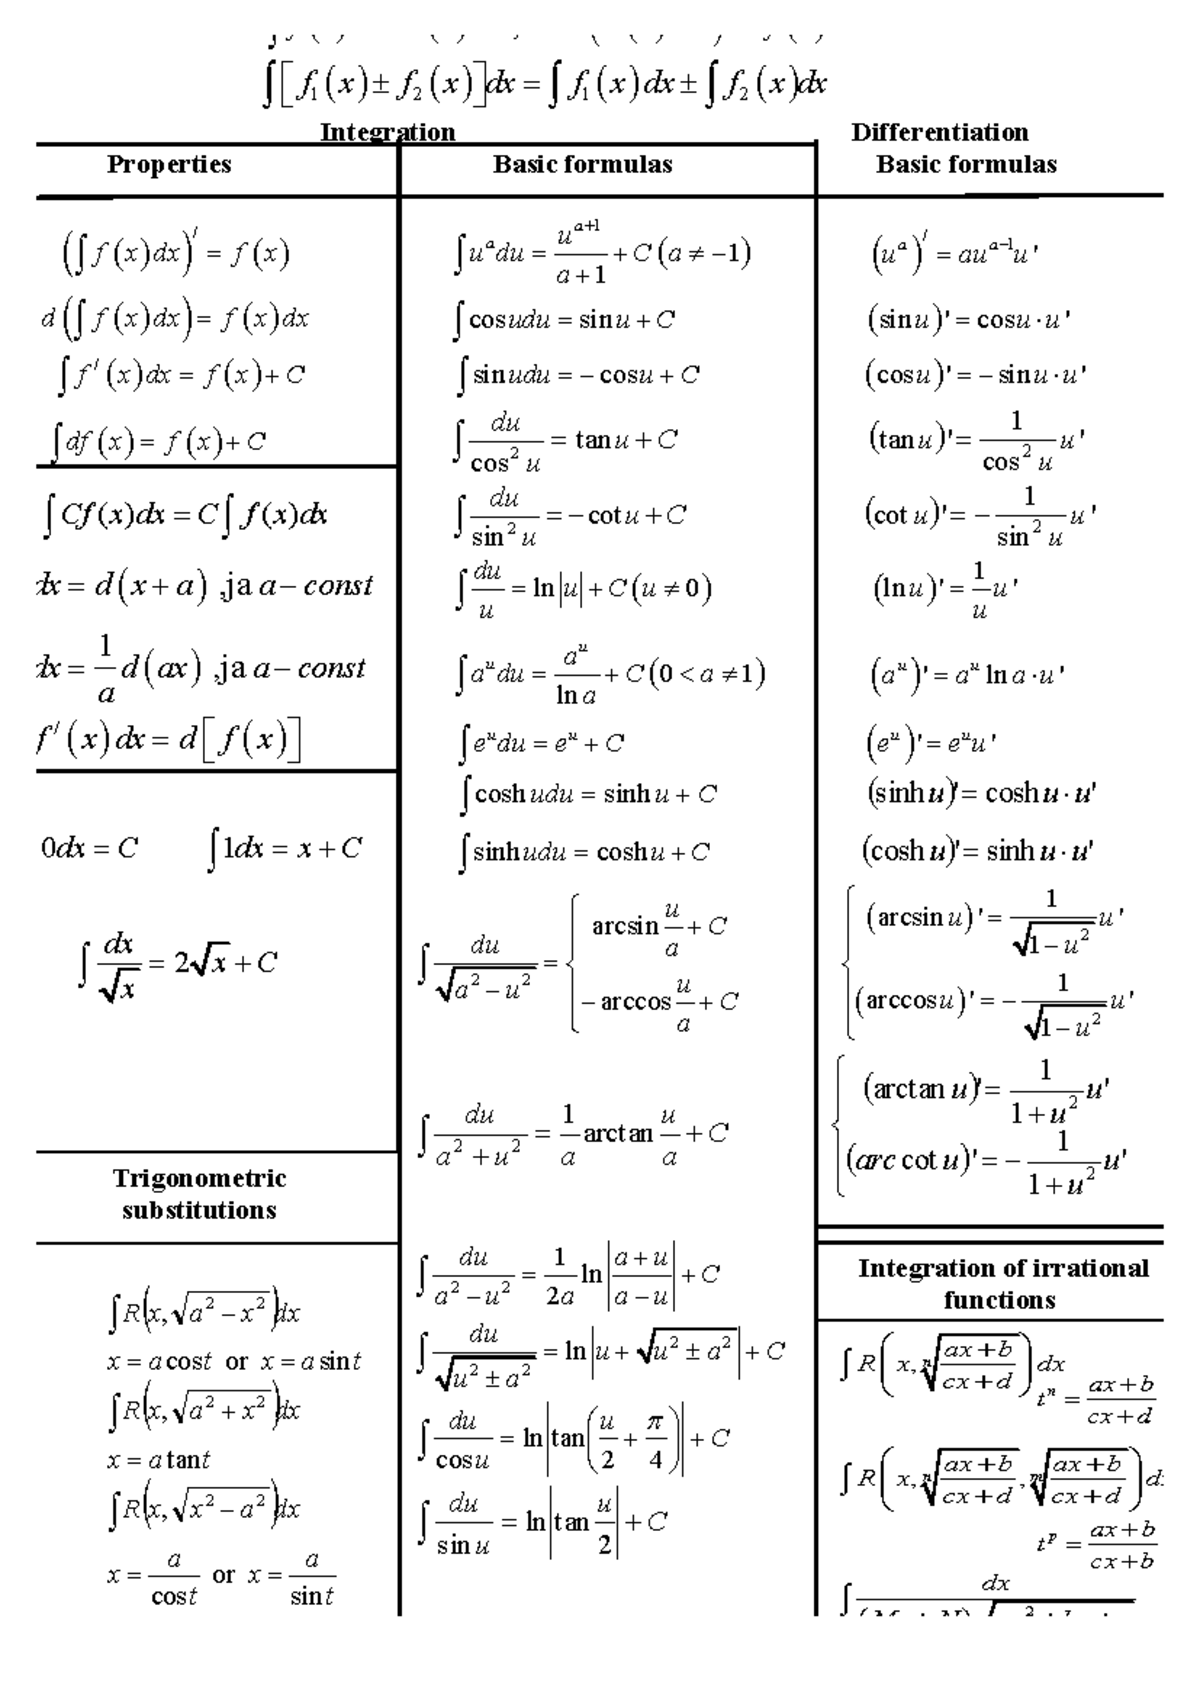 ∫[f₁(x)±f₂(x)]dx = ∫f₁(x)dx ± ∫f₂(x)dx
Integration
Properties
(∫f(x)dx)′ = f(x)
d(∫f(x)dx) = f(x)dx
∫f′(x)dx = f(x)+C
∫df(x) = f(x)+C
∫Cf(x)dx = C∫f(x)dx
dx = d(x+a) ,ja a−const
dx = 1/a d(ax) ,ja a−const
f′(x)dx = d[f(x)]
0dx = C ∫1dx = x+C
∫dx/√x = 2√x+C
Trigonometric
substitutions
∫R(x,√(a²−x²))dx
x = a cost or x = a sint
∫R(x,√(a²+x²))dx
x = a tant
∫R(x,√(x²−a²))dx
x = a/cost or x = a/sint
Basic formulas
∫uᵃdu = uᵃ⁺¹/(a+1) + C(a ≠ −1)
∫cosudu = sinu+C
∫sinudu = −cosu+C
∫du/cos²u = tanu+C
∫du/sin²u = −cotu+C
∫du/u = ln|u|+C(u ≠ 0)
∫aᵘdu = aᵘ/lna + C(0 < a ≠1)
∫eᵘdu = eᵘ + C
∫coshudu = sinhu+C
∫sinhudu = coshu+C
∫du/√(a²−u²) = { arcsin u/a + C
−arccos u/a + C
∫du/(a²+u²) = 1/a arctan u/a + C
∫du/(a²−u²) = 1/2a ln|(a+u)/(a−u)| + C
∫du/√(u²±a²) = ln|u+√(u²±a²)| + C
∫du/cosu = ln|tan(u/2 + π/4)| + C
∫du/sinu = ln|tan u/2| + C
Differentiation
Basic formulas
(uᵃ)′ = auᵃ⁻¹u'
(sinu)' = cosu·u'
(cosu)' = −sinu·u'
(tanu)' = 1/cos²u u'
(cotu)' = −1/sin²u u'
(lnu)' = 1/u u'
(aᵘ)' = aᵘ lna·u'
(eᵘ)' = eᵘu'
(sinhu)' = coshu·u'
(coshu)' = sinhu·u'
(arcsinu)' = 1/√(1−u²) u'
(arccosu)' = −1/√(1−u²) u'
(arctanu)' = 1/(1+u²) u'
(arc cotu)' = −1/(1+u²) u'
Integration of irrational
functions
∫R(x, ⁿ√((ax+b)/(cx+d)))dx
tⁿ = (ax+b)/(cx+d)
∫R(x, ⁿ√((ax+b)/(cx+d)), ᵐ√((ax+b)/(cx+d)))d
tᵖ = (ax+b)/(cx+b)
∫dx